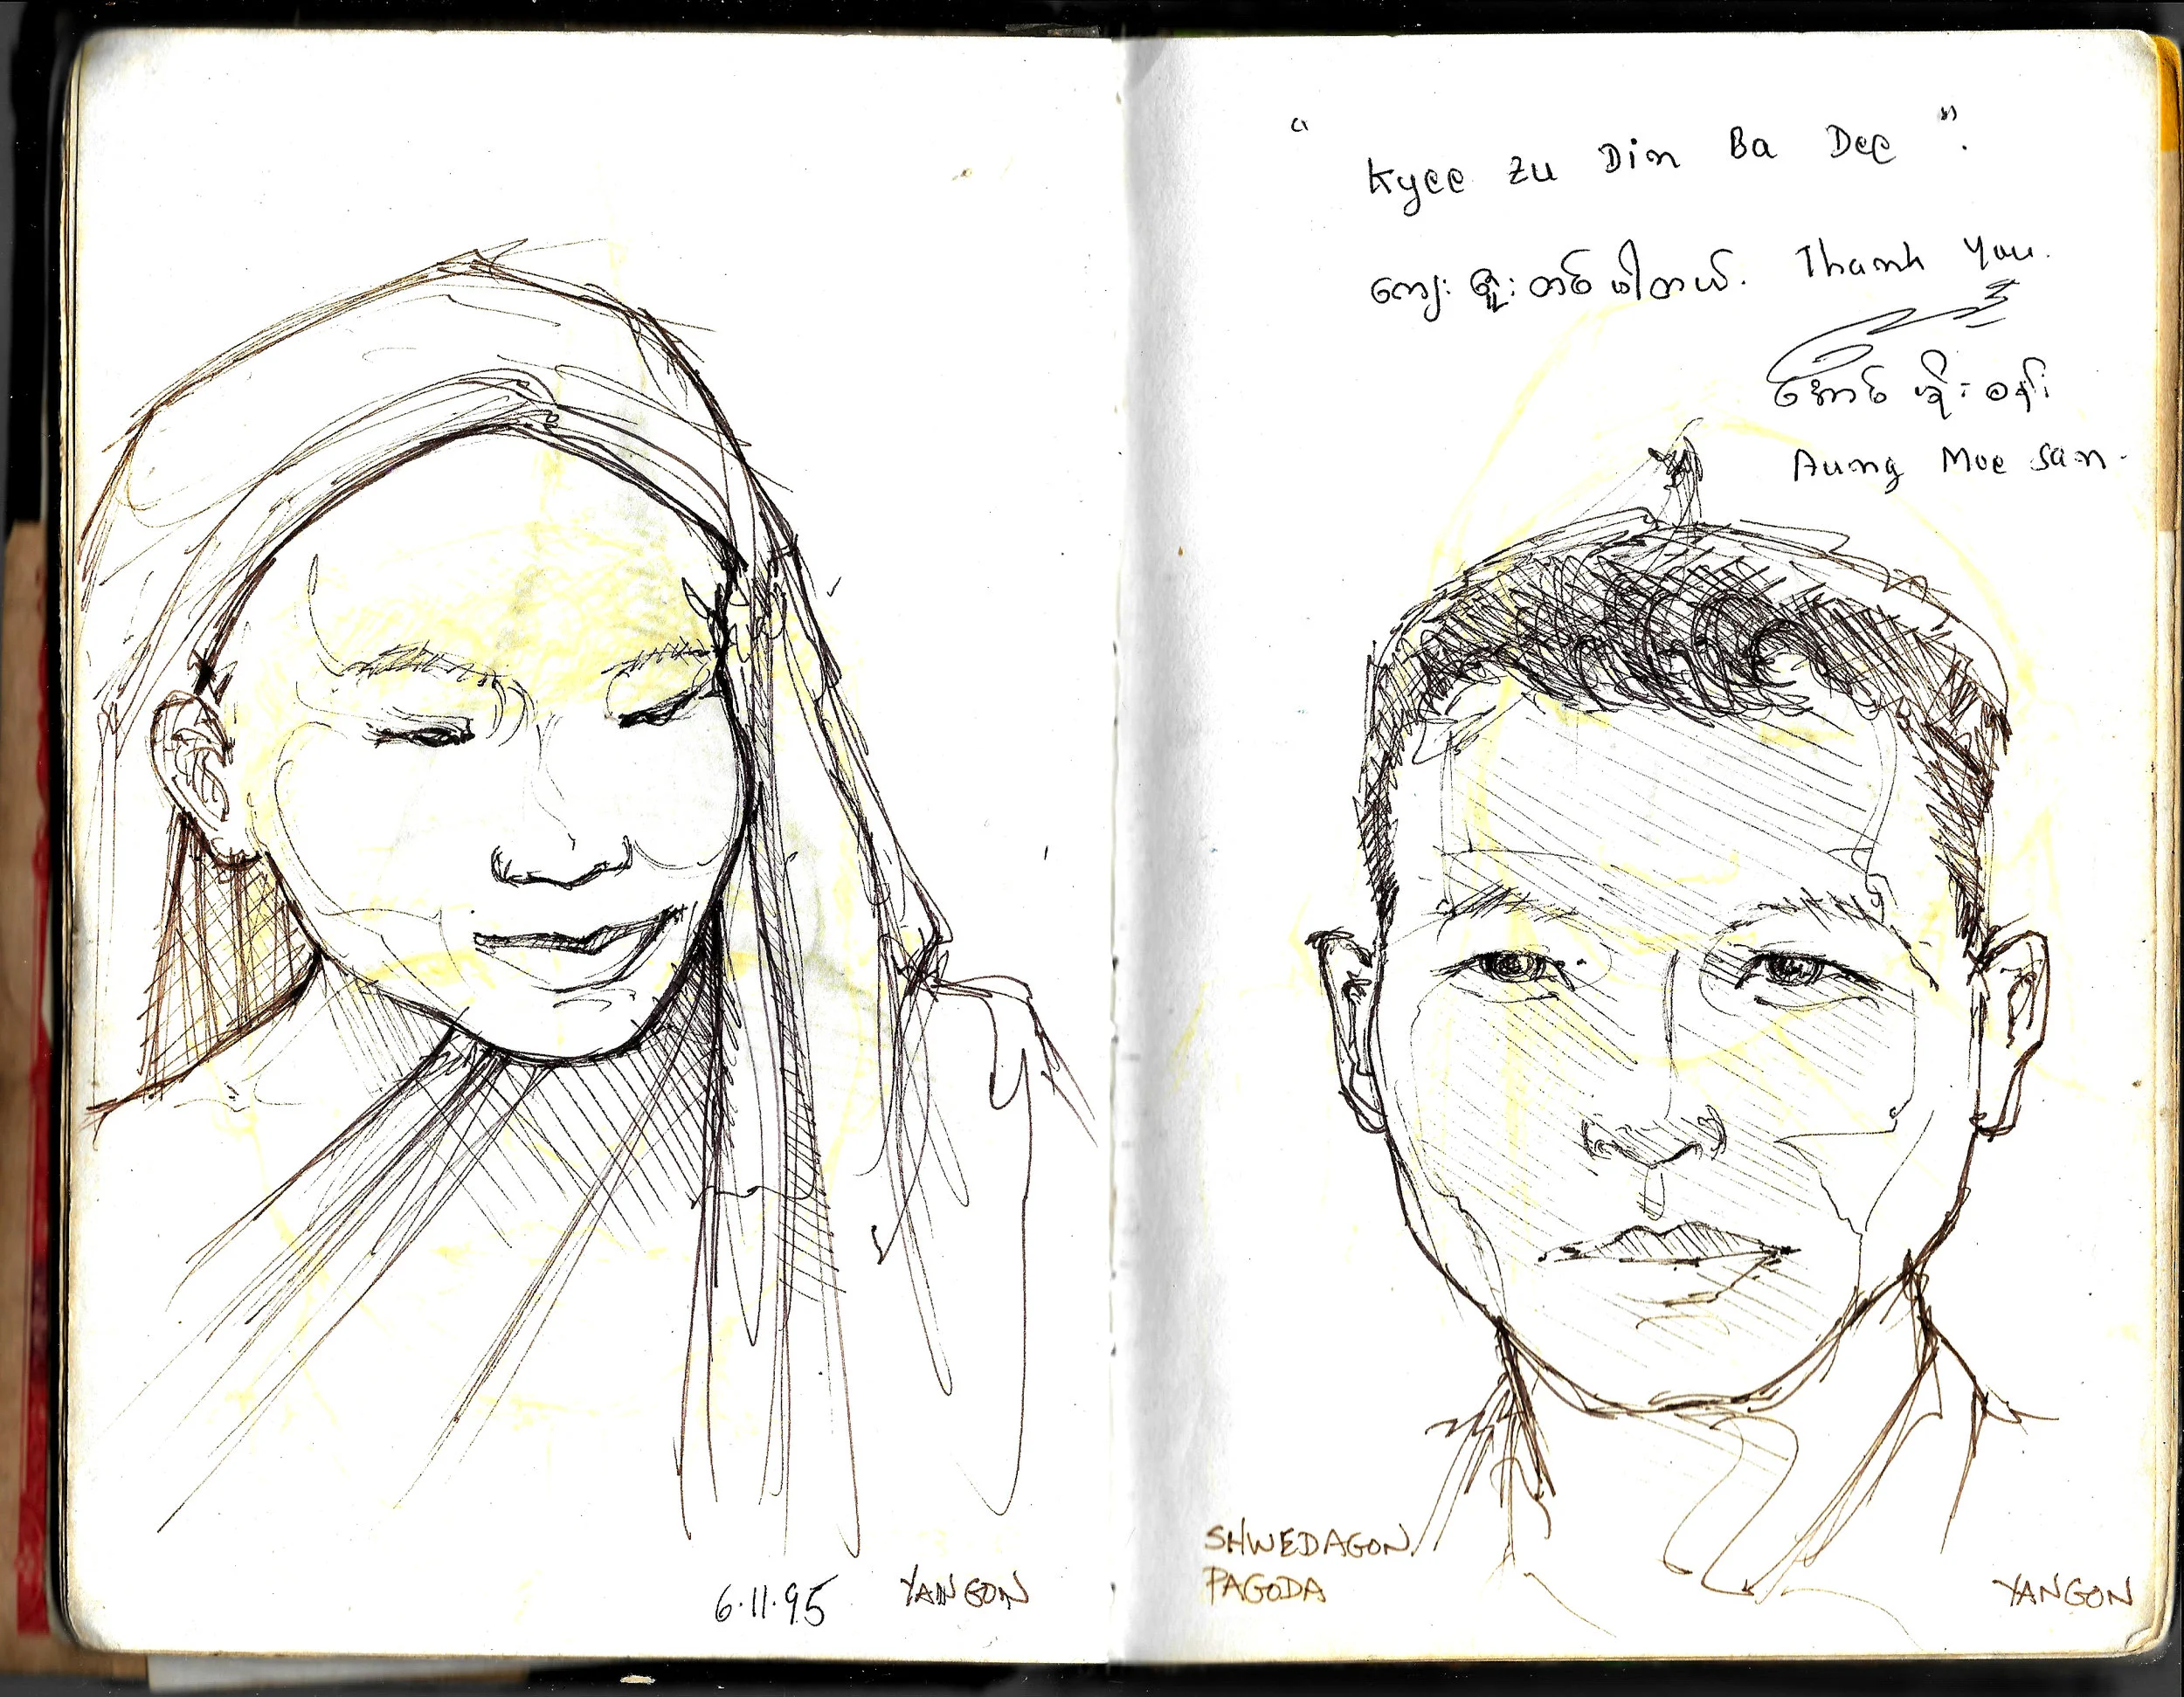 6.11.95 YANGON
"Kyee Zu Din Ba Dee".
ကျေးဇူးတင်ပါတယ်. Thank You.
အောင်မိုးစန်း
Aung Moe San.
SHWEDAGON
PAGODA
YANGON